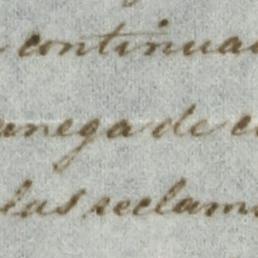 continua
anega de c
las reclam